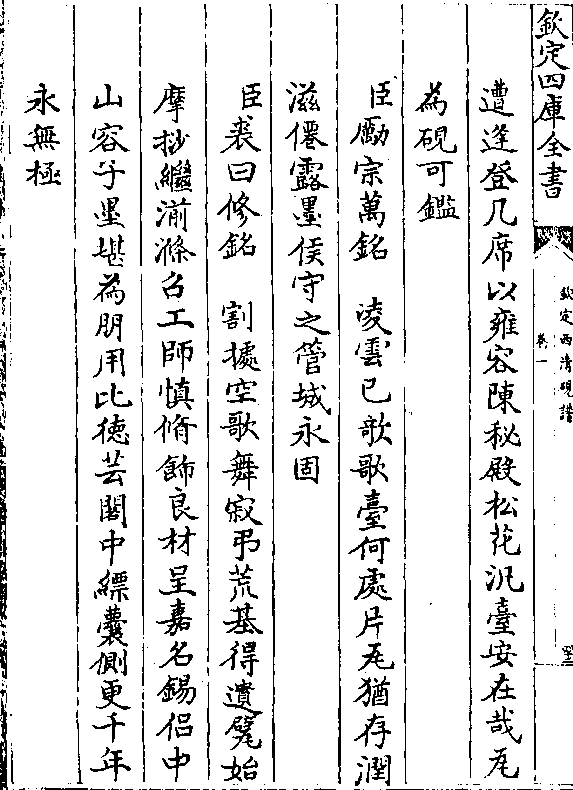 欽定四庫全書
欽定西清硯譜
卷一
遭逢登几席以雍容陳秘殿松花汎臺安在哉瓦
為硯可鑑
臣勵宗萬銘 凌雲已欹歌臺何處片瓦猶存潤
滋僊露墨侯守之管城永固
臣裘曰修銘 割據空歌舞寂弔荒基得遺甓始
摩抄繼湔滌召工師慎脩飾良材呈嘉名錫侣中
山容子墨堪為朋用比徳芸閣中縹囊側更千年
永無極